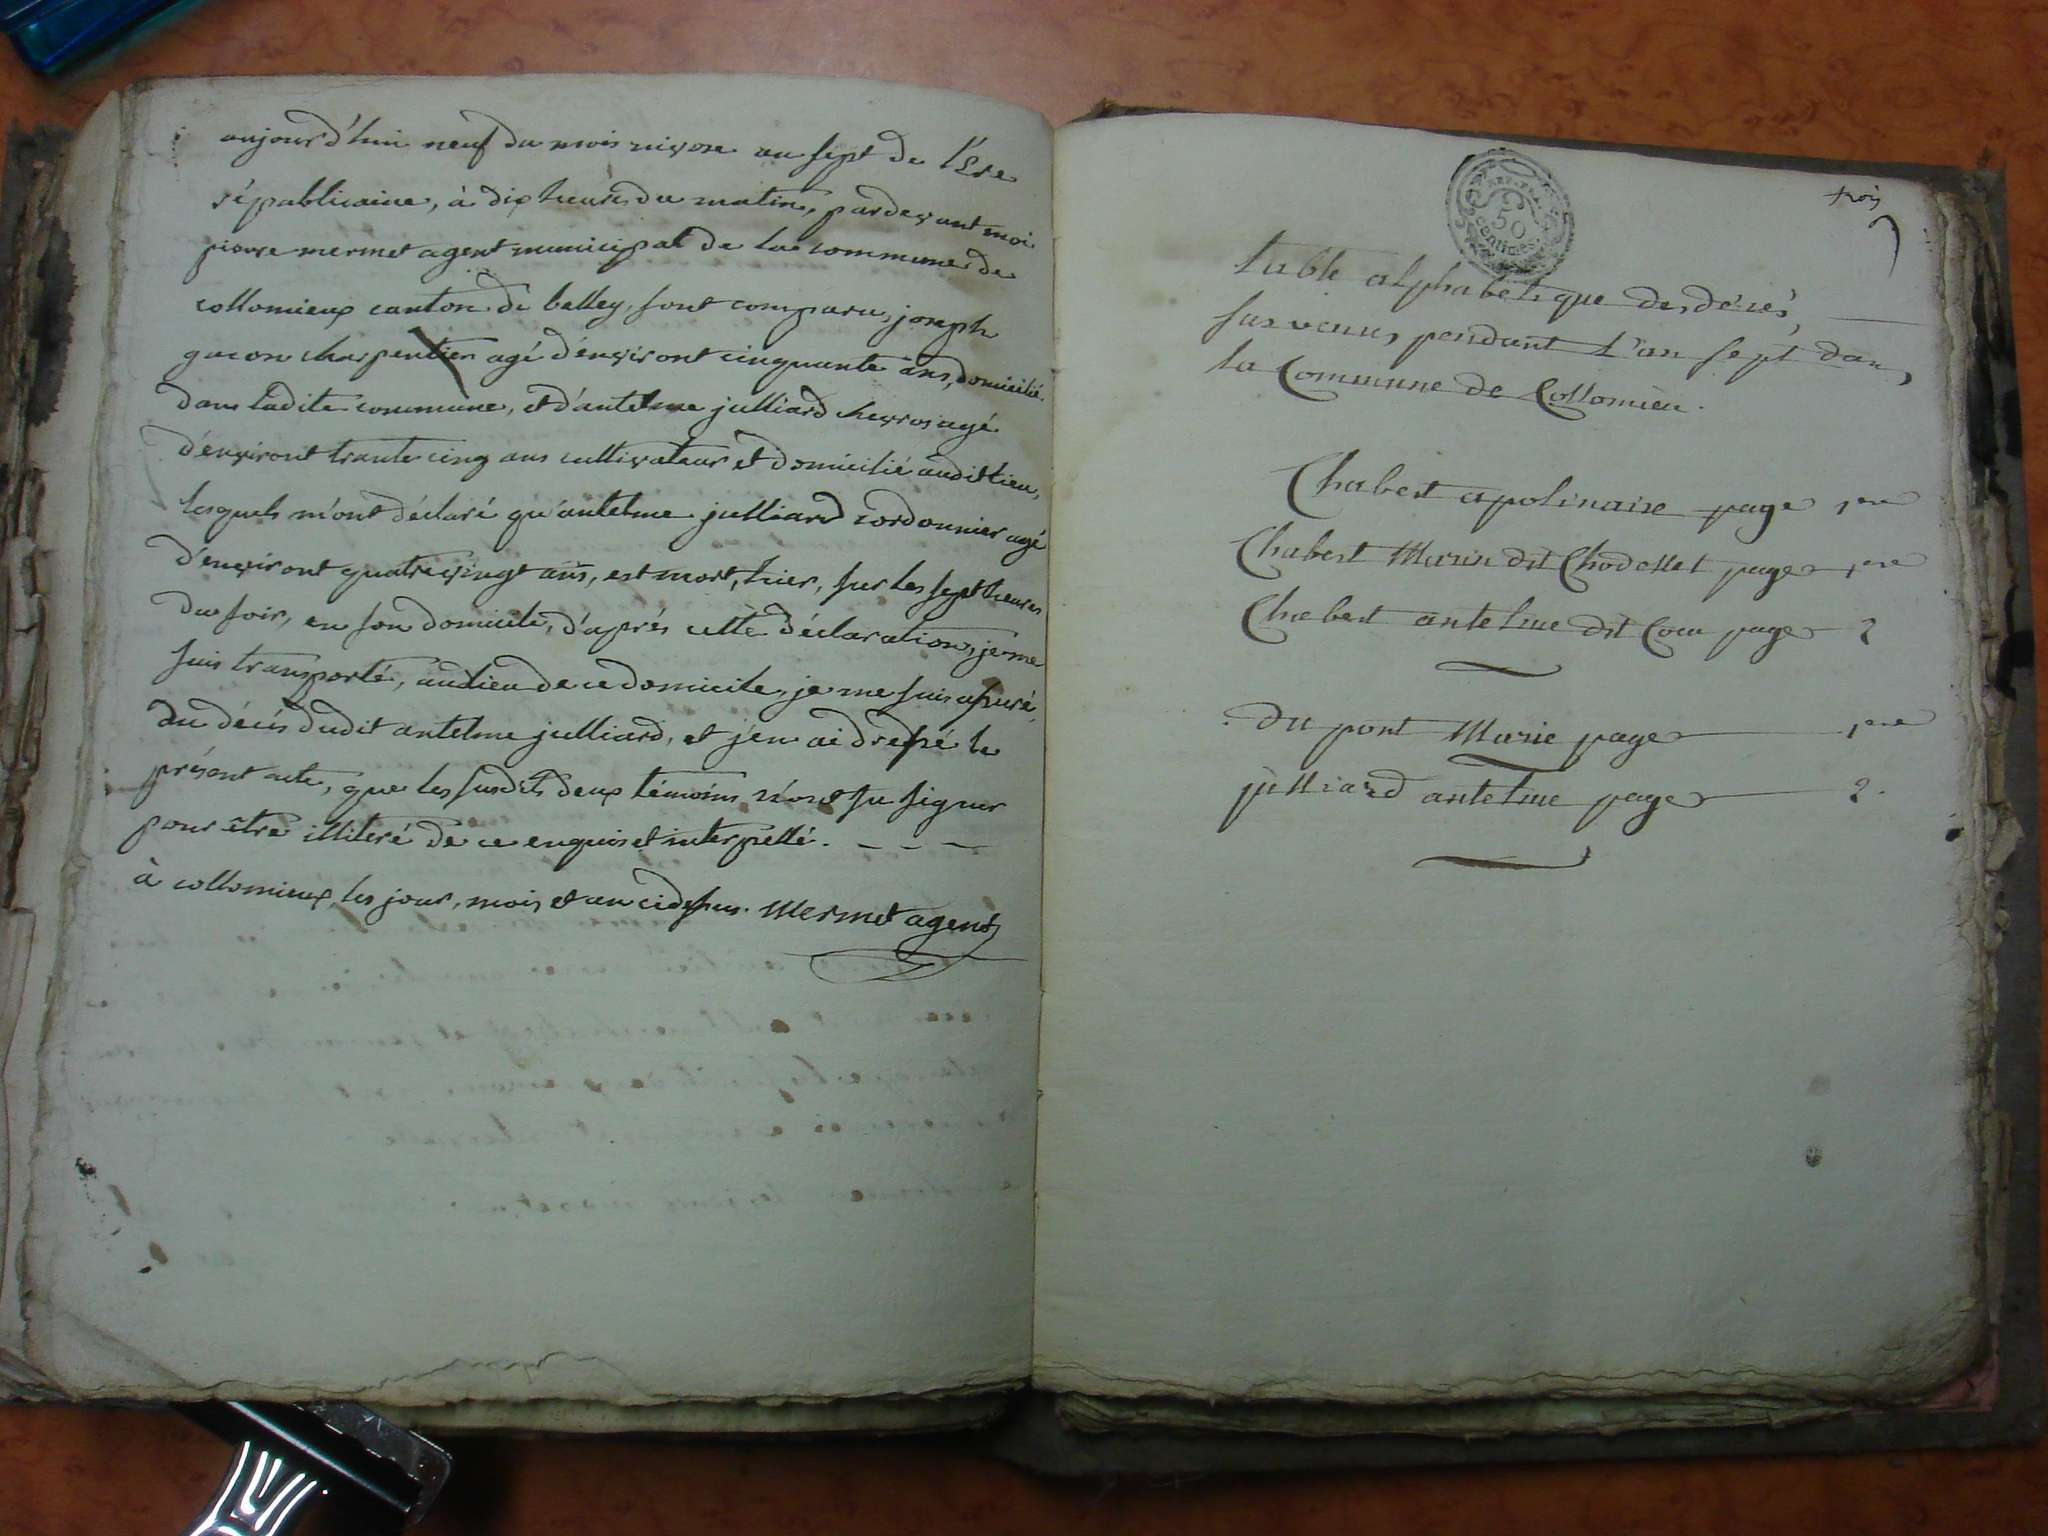 aujourd'hui neuf du mois nivose an sept de l'Ere
républicaine, à dix heures du matin, pardevant moi
pierre mermet agent municipal de la commune de
collomieux canton de belley, sont comparu, joseph
gucon charpentier agé d'environt cinquante ans, domicilié
dans ladite commune, et d'antelme julliard agé
d'environt trante cinq ans cultivateur et domicilié audit lieu,
lesquels m'ont déclaré qu'antelme julliard cordonnier agé
d'environt quatrevingt ans, est mort, hier, sur les sept heures
du soir, en son domicile, d'après cette déclaration, je me
suis transporté, au lieu de ce domicile, je me suis assuré
du décès dudit antelme julliard, et j'en ai dressé le
présent acte, que les susdits deux témoins n'ont su signer
pour être illiteré de ce enquis et interpellé. - - -
à collomieux les jour, mois et an cidessus. Mermet agent
trois
REP. FRA.
50
centimes
table alphabetique des décès,
survenus pendant l'an sept dans
la Commune de Collomieu.
Chabert apolinaire page 1ere
Chabert Marin dit Chodellet page 1ere
Chabert antelme dit Cocu page 2
du pont Marie page 1ere
julliard antelme page 2.